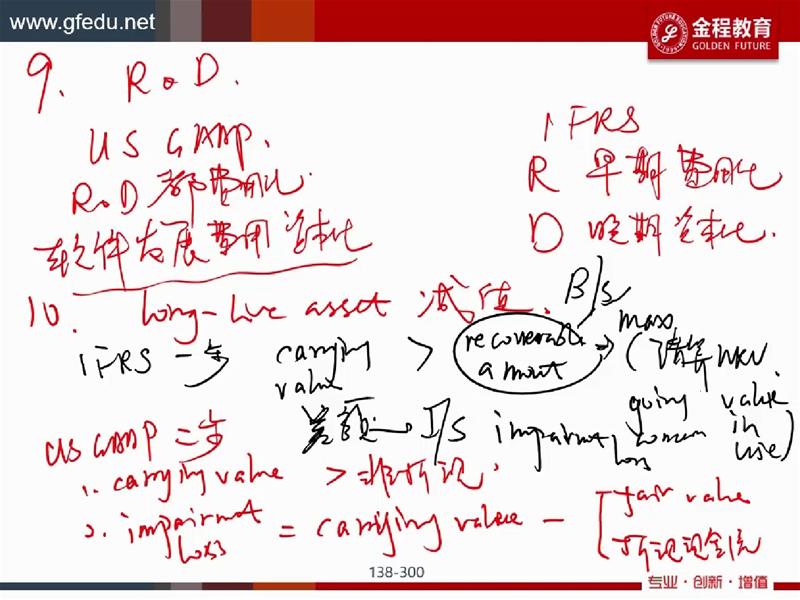 www.gfedu.net
金程教育
GOLDEN FUTURE
9. R&D.
US GAAP.
R&D 都费用化
软件发展费用资本化
IFRS
R 早期费用化
D 晚期资本化.
10. long-live asset 减值.
B/S
IFRS 一步 carrying value > recoverable amount = max (清算NRV,
going concern value in use)
差额 → I/S impairment loss
US GAAP 二步
1. carrying value > 非折现.
2. impairment loss = carrying value - [ fair value
折现现金流
138-300
专业·创新·增值